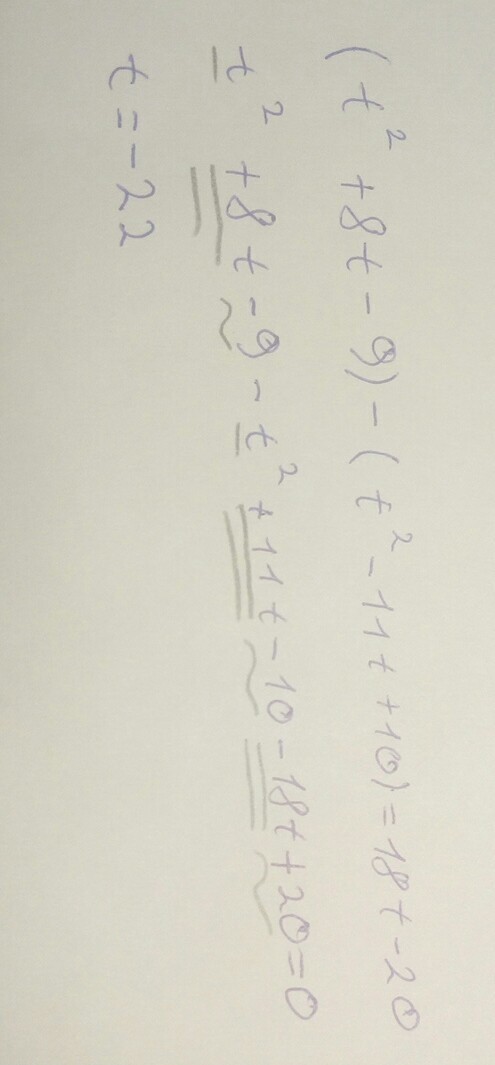 (t² + 8t - 9) - (t² - 11t + 10) = 18t - 20
t² + 8t - 9 - t² + 11t - 10 - 18t + 20 = 0
t = -22